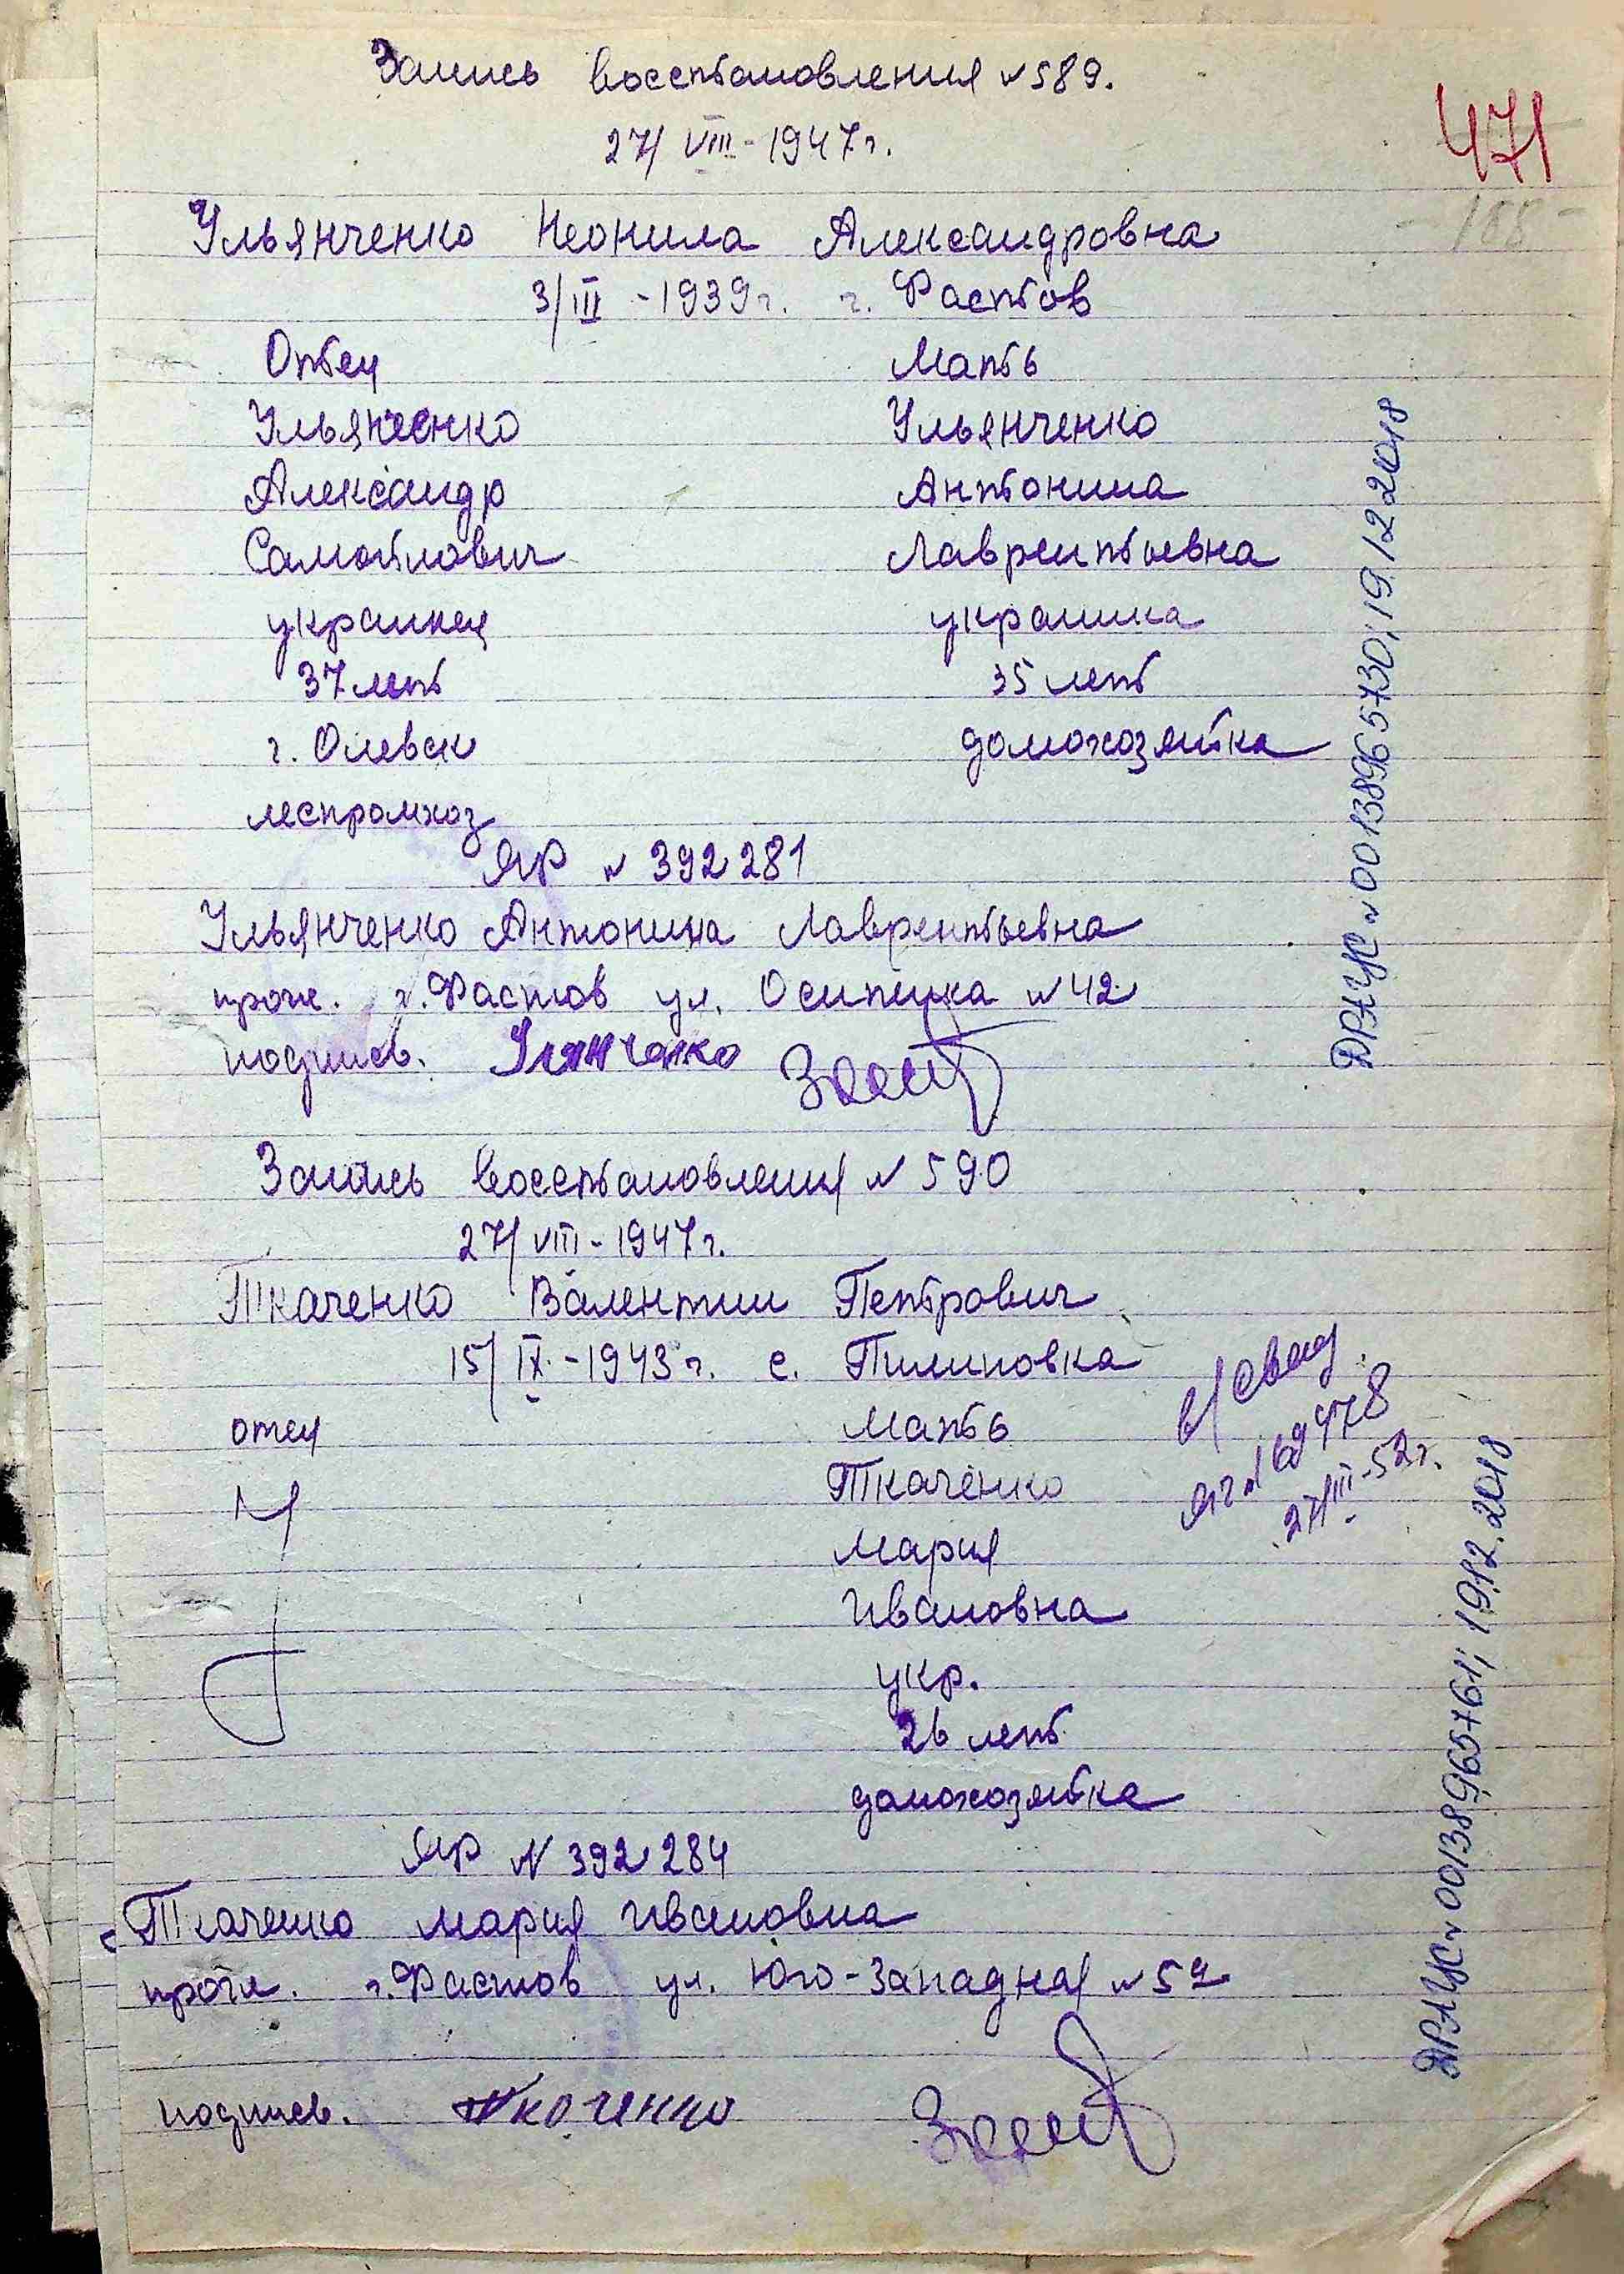 Запись восстановления № 589.
27/VIII-1947г.
471
-188-
Ульянченко Неонила Александровна
3/III-1939г. г. Фастов
Отец Мать
Ульянченко Ульянченко
Александр Антонина
Самойлович Лаврентьевна
украинец украинка
37 лет 35 лет
г. Олевск домохозяйка
леспромхоз
ЯР № 392281
Ульянченко Антонина Лаврентьевна
прож. г. Фастов ул. Осипенка № 42
подпись.
ДРАЦС № 00138965730; 19.12.2018
Запись восстановления № 590
27/VIII-1947г.
Ткаченко Валентин Петрович
15/IX-1943г. с. Пилиповка
отец Мать
Ткаченко
Мария
Ивановна
укр.
26 лет
домохозяйка
27/III-52г.
ЯР № 392284
Ткаченко Мария Ивановна
прож. г. Фастов ул. Юго-Западная № 52
подпись. Ткаченко
ДРАЦС № 00138965761; 19.12.2018